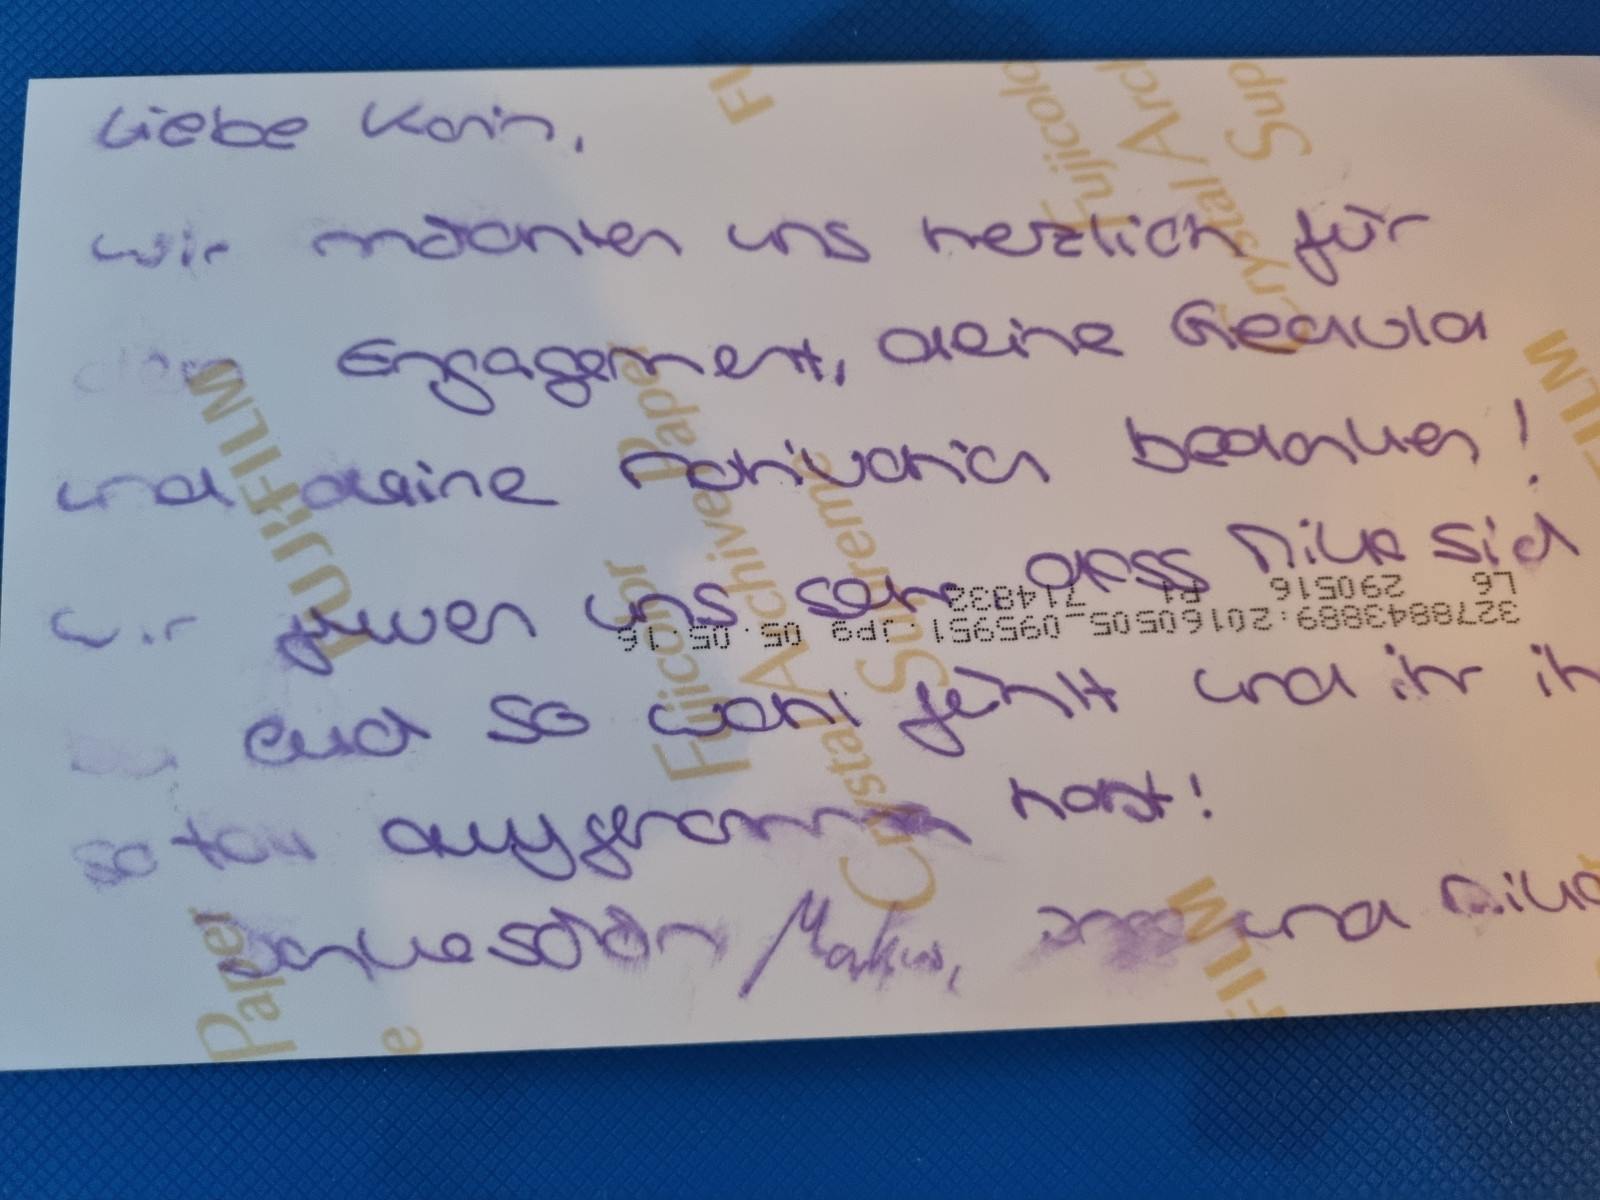 Liebe Karin,
wir möchten uns herzlich für
dein Engagement, deine Geduld
und deine bedanken!
Wir freuen uns sehr, dass Mika sich
bei euch so wohl fühlt und ihr ihn
so toll aufgenommen habt!
Dankeschön Markus, und Mika
3278843889:20160505_095951.JPG 05.05.16
L6 290516 R1 714832
FUJIFILM
Fujicolor
Crystal Archive Paper
Supreme